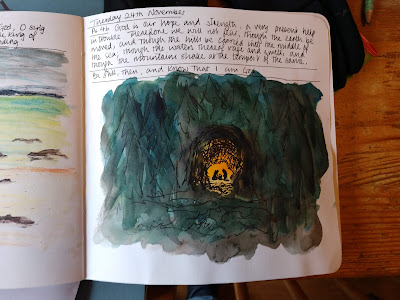 God, O sing
king of
Tuesday 24th November
Ps 46 God is our hope and strength, a very present help
in trouble. Therefore we will not fear, though the earth be
moved, and though the hills be carried into the middle of
the sea, though the waters thereof rage and swell, and
though the mountains shake at the tempest of the same.
Be still, then, and know that I am God.